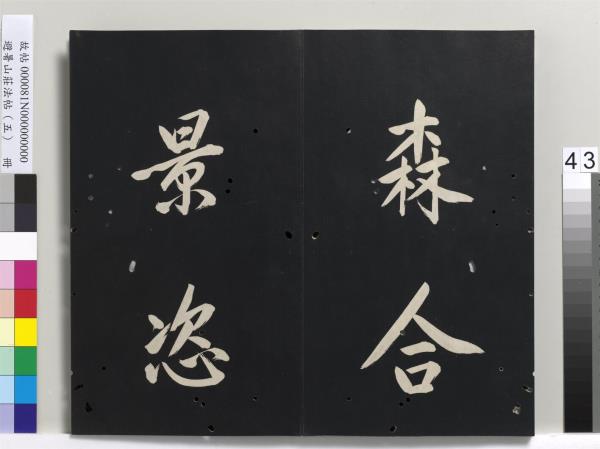 森合
景恣
故帖 000081N000000000
避暑山莊法帖（五） 冊
43